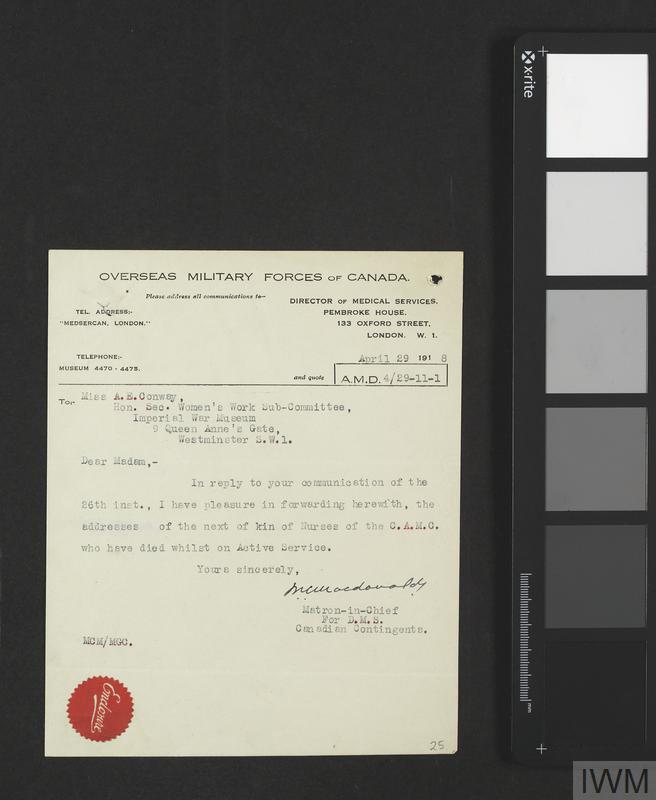 OVERSEAS MILITARY FORCES OF CANADA.
Please address all communications to—
TEL. ADDRESS;-
"MEDSERCAN, LONDON."
DIRECTOR OF MEDICAL SERVICES.
PEMBROKE HOUSE.
133 OXFORD STREET,
LONDON. W. 1.
TELEPHONE:-
MUSEUM 4470 - 4475.
April 29 1918
and quote A.M.D. 4/29-11-1
To:- Miss A.E.Conway,
Hon. Sec. Women's Work Sub-Committee,
Imperial War Museum
9 Queen Anne's Gate,
Westminster S.W.1.
Dear Madam,-
In reply to your communication of the
26th inst., I have pleasure in forwarding herewith, the
addresses of the next of kin of Nurses of the C.A.M.C.
who have died whilst on Active Service.
Yours sincerely,
M C Macdonald
Matron-in-Chief
For D.M.S.
Canadian Contingents.
MCM/MGC.
Enclosure
25
x-rite
mm
IWM